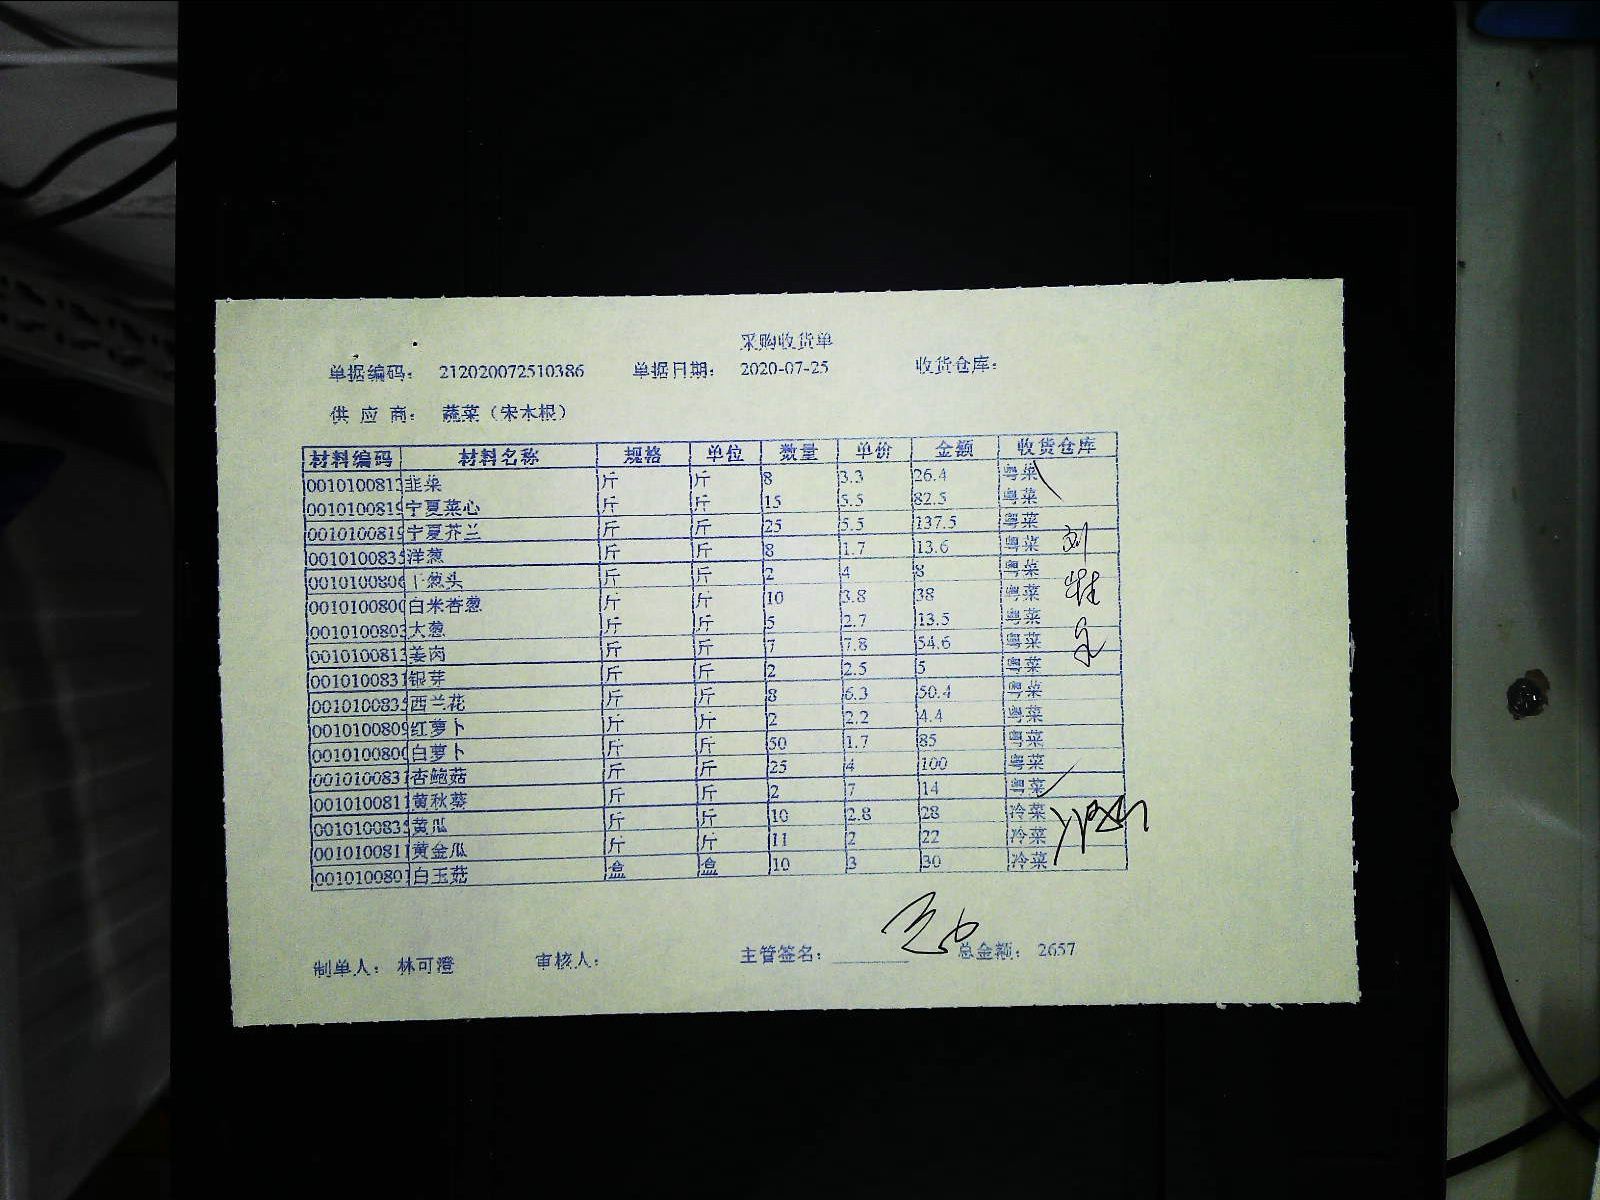 采购收货单
单据编码： 212020072510386 单据日期： 2020-07-25 收货仓库：
供 应 商： 蔬菜（宋木根）
材料编码 材料名称 规格 单位 数量 单价 金额 收货仓库
001010081 韭菜 斤 斤 8 3.3 26.4 粤菜
001010081 宁夏菜心 斤 斤 15 5.5 82.5 粤菜
001010081 宁夏芥兰 斤 斤 25 5.5 137.5 粤菜
001010083 洋葱 斤 斤 8 1.7 13.6 粤菜
001010080 干葱头 斤 斤 2 4 8 粤菜
001010080 白米香葱 斤 斤 10 3.8 38 粤菜
001010080 大葱 斤 斤 5 2.7 13.5 粤菜
001010081 姜肉 斤 斤 7 7.8 54.6 粤菜
001010083 银芽 斤 斤 2 2.5 5 粤菜
001010083 西兰花 斤 斤 8 6.3 50.4 粤菜
001010080 红萝卜 斤 斤 2 2.2 4.4 粤菜
001010080 白萝卜 斤 斤 50 1.7 85 粤菜
001010083 杏鲍菇 斤 斤 25 4 100 粤菜
001010081 黄秋葵 斤 斤 2 7 14 粤菜
001010083 黄瓜 斤 斤 10 2.8 28 冷菜
001010081 黄金瓜 斤 斤 11 2 22 冷菜
001010080 白玉菇 盒 盒 10 3 30 冷菜
制单人： 林可澄 审核人： 主管签名： 总金额： 2657